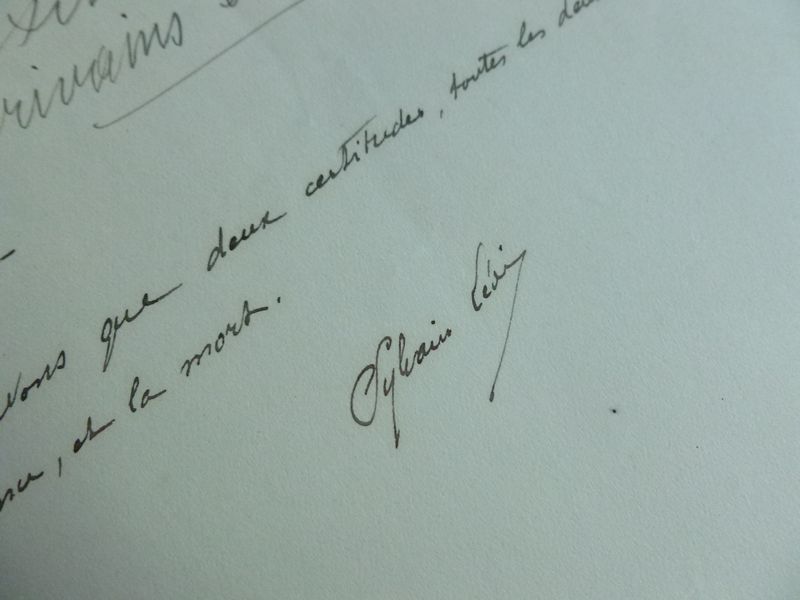 rivains
vons que deux certitudes, toutes les deux
, et la mort.
Sylvain Lévi